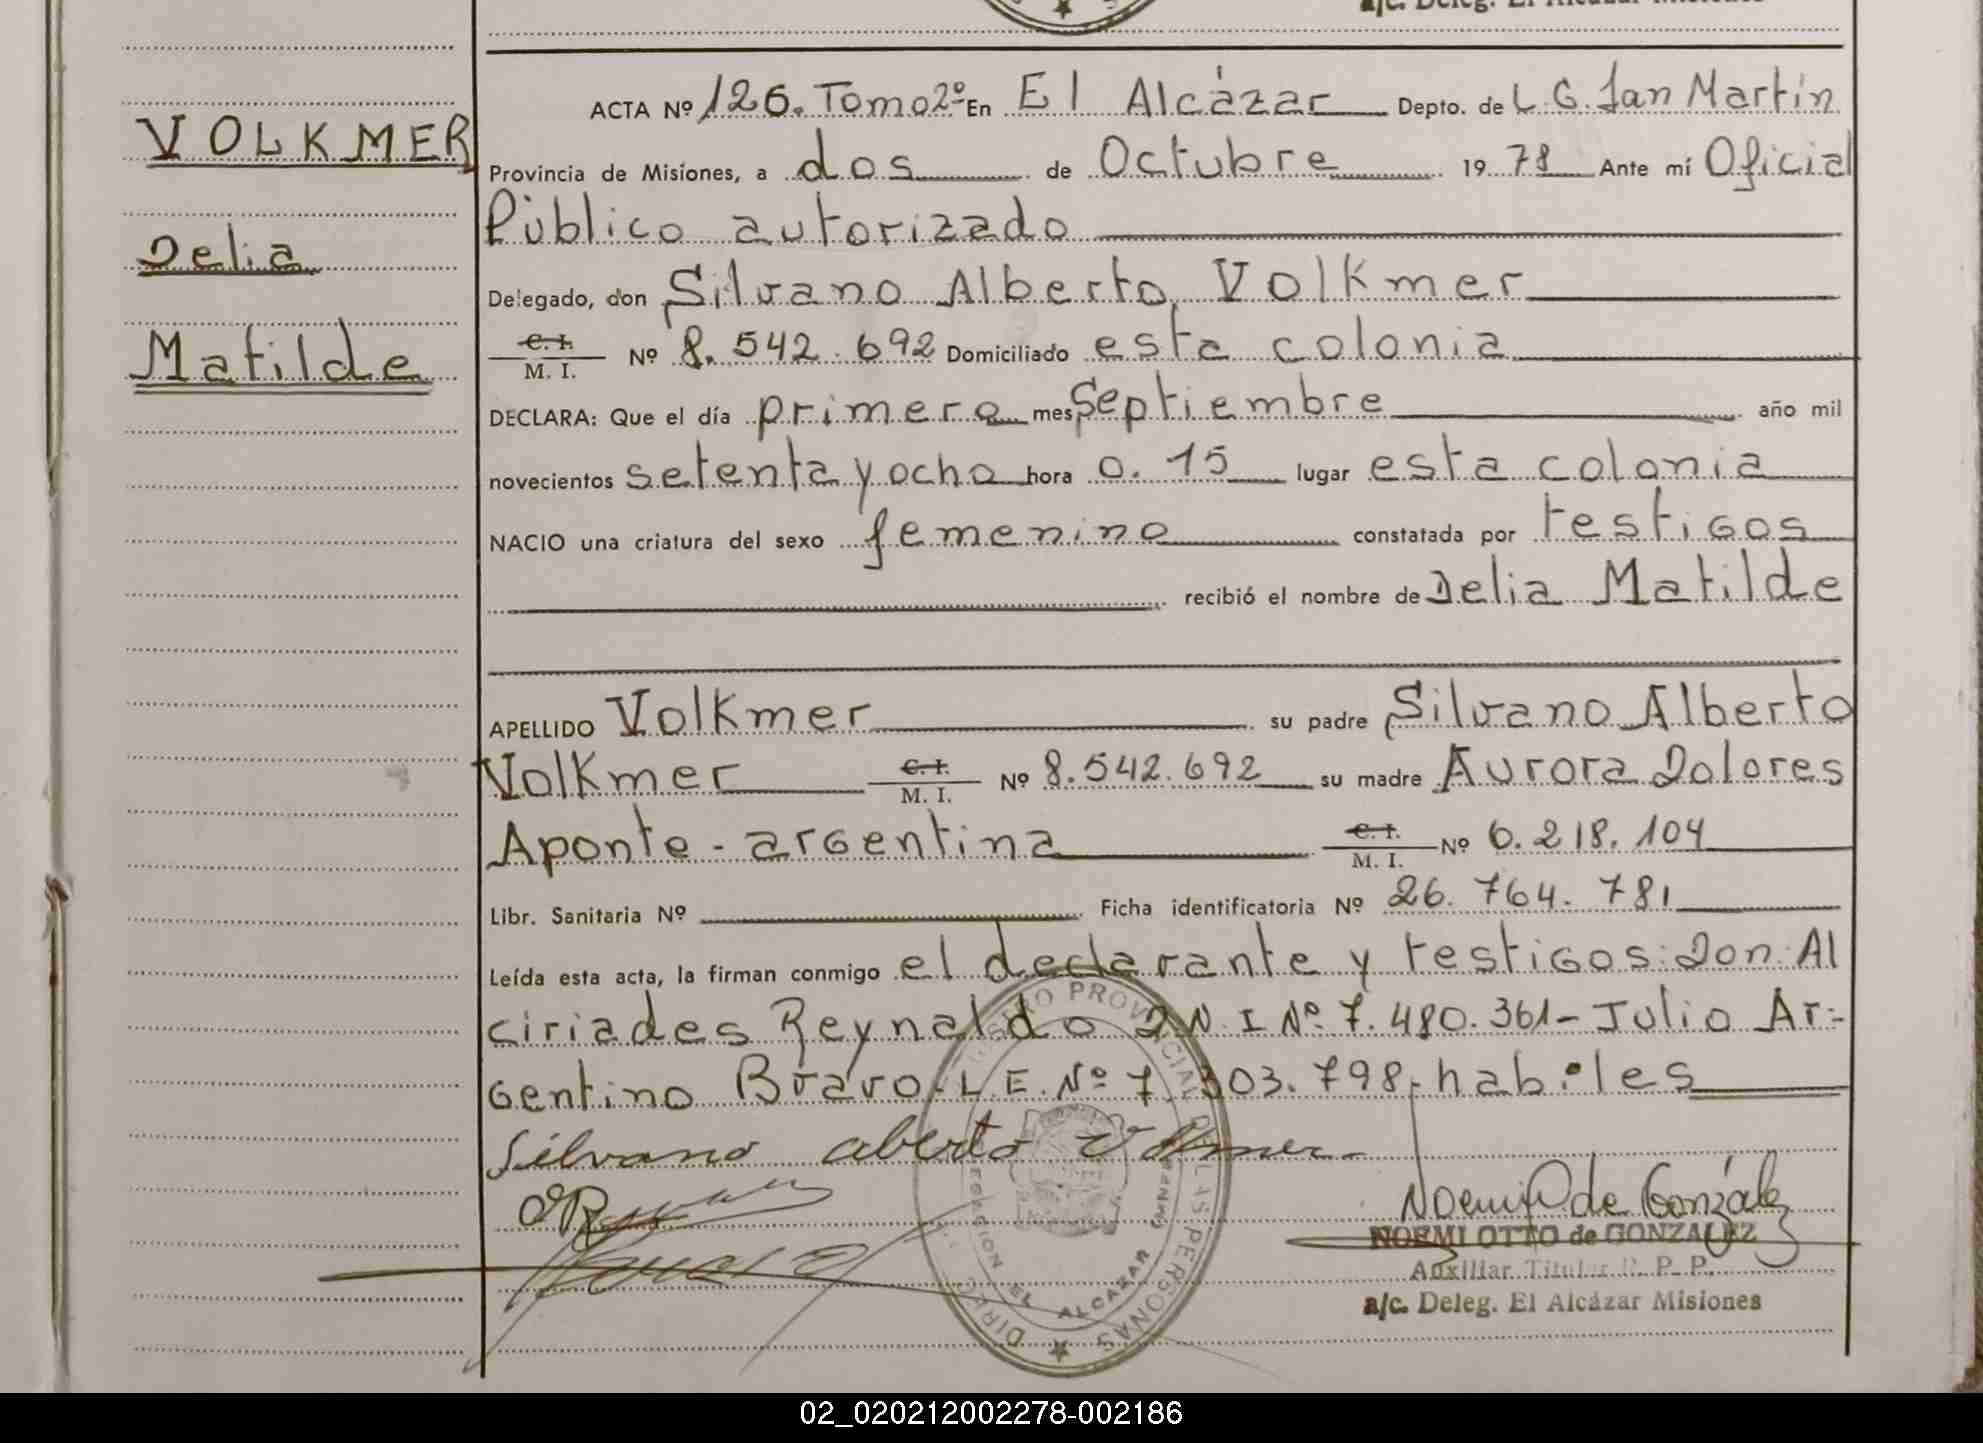 a/c. Deleg. El Alcázar Misiones
VOLKMER
Delia
Matilde
ACTA Nº 126. Tomo 2º En El Alcázar Depto. de L. G. San Martín
Provincia de Misiones, a dos de Octubre 1978 Ante mí Oficial
Público autorizado
Delegado, don Silvano Alberto Volkmer
C. I. M. I. Nº 8.542.692 Domiciliado esta colonia
DECLARA: Que el día primero mes Septiembre año mil
novecientos setenta y ocho hora 0.15 lugar esta colonia
NACIO una criatura del sexo femenino constatada por testigos
recibió el nombre de Delia Matilde
APELLIDO Volkmer su padre Silvano Alberto
Volkmer C. I. M. I. Nº 8.542.692 su madre Aurora Dolores
Aponte - argentina C. I. M. I. Nº 6.218.104
Libr. Sanitaria Nº Ficha identificatoria Nº 26.764.781
Leída esta acta, la firman conmigo el declarante y testigos: Don Al
ciriades Reynaldo D.N.I Nº 7.480.361- Julio Ar-
gentino Bravo. L.E. Nº 7.303.798, habiles
Silvano aberto Volkmer
Noemi O de González
NOEMI OTTO de GONZALEZ
Auxiliar Titular R. P. P.
a/c. Deleg. El Alcázar Misiones
PROVINCIAL DE LAS PERSONAS
EL ALCAZAR
02_020212002278-002186